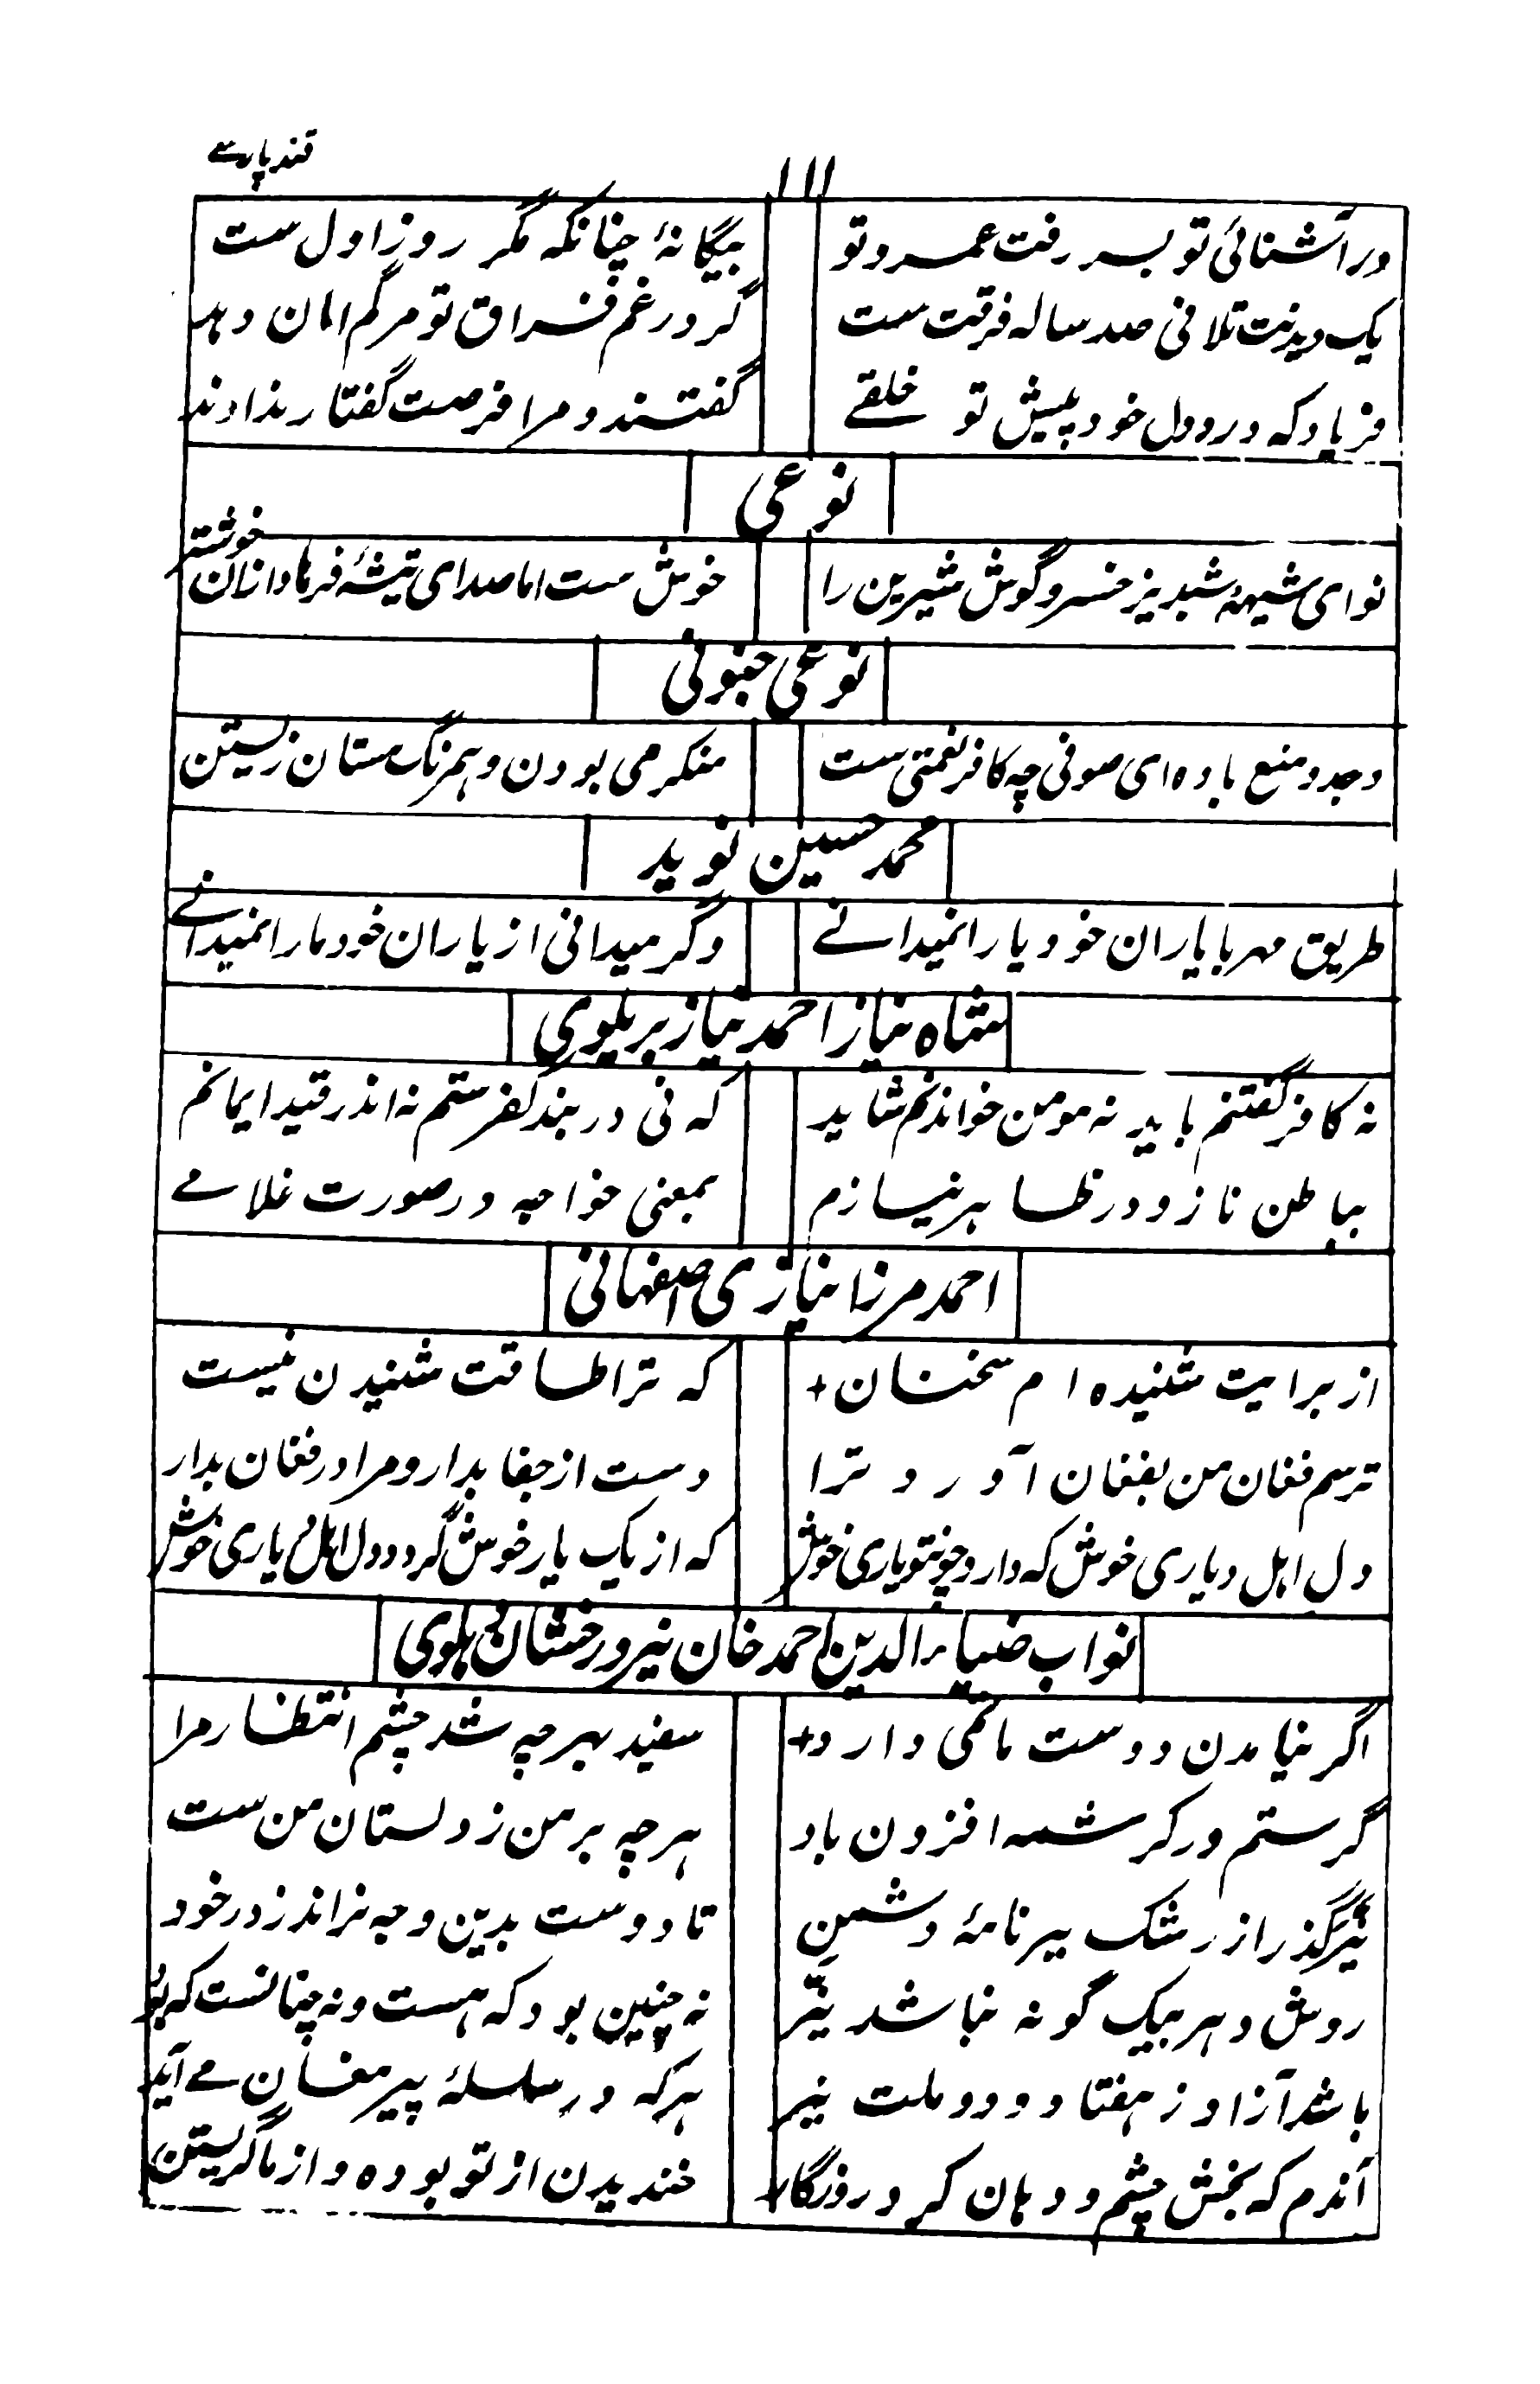 قند پارسے
۱۱۱
در آشنائی تو بسر رفت عمر و تو
بیگانۂ چنانکہ مگر روز اول ست
یک دیدنت تلافی صد سالہ فرقت ست
گر در غم فراق تو مرگم امان دہد
فریاد کہ درد دل خود پیش تو خلقے
گفتند و مرا فرصت گفتار ندادند
نوعی
نوای شیہۂ شبدیز خسرو گوش شیرین را
خوش ست اما صدای تیشۂ فرہاد ازان خوشتر
نوعی جنونی
وجد و منع بادہ ای صوفی چہ کافر نعمتی ست
منکر می بودن و ہمرنگ مستان زیستن
محمد حسین نوید
طریق مہر با یاران خود یارا نمیدانے
وگر میدانی از یاران خود مارا نمیدانے
شاہ نیاز احمد نیاز بریلوی
نہ کافر گفتنم باید نہ مومن خواندنم شاید
کہ نی در بند کفرستم نہ اندر قید ایمانم
بباطن ناز و در ظاہر نیازم
بمعنی خواجہ در صورت غلامے
احمد مرزا نیازی اصفہانی
از برایت شنیدہ ام سخنان +
کہ ترا طاقت شنیدن نیست
ترسم فغان من بفغان آورد ترا
دست از جفا بدار و مرا در فغان بدار
دل اہل دیاری خوش کہ دارد چونتو یاری خوش
کہ از یک یار خوش گردد دل اہل دیاری خوش
نواب ضیاء الدین احمد خان نیر و رخشان دہلوی
اگر نیامدن دوست ماتمی دارد +
سفید بہر چہ شد چشم انتظار مرا
گر ستم ور کرشمہ افزون باد
ہر چہ بر من ز دلستان من ست
نیر گذر از رشک ببر نامۂ دشمن
تا دوست بدین وجہ نراند ز در خود
روش دہر بیک گونہ نباشد نیر
نہ چنین بود کہ ہست و نہ چنانست کہ بود
باشد آزاد ز ہفتاد و دو ملت نیر
ہر کہ در سلسلۂ پیر مغان مے آید
آندم کہ بخش چشم و دہان کرد روزگار +
خندیدن از تو بودہ و از ما گریستن